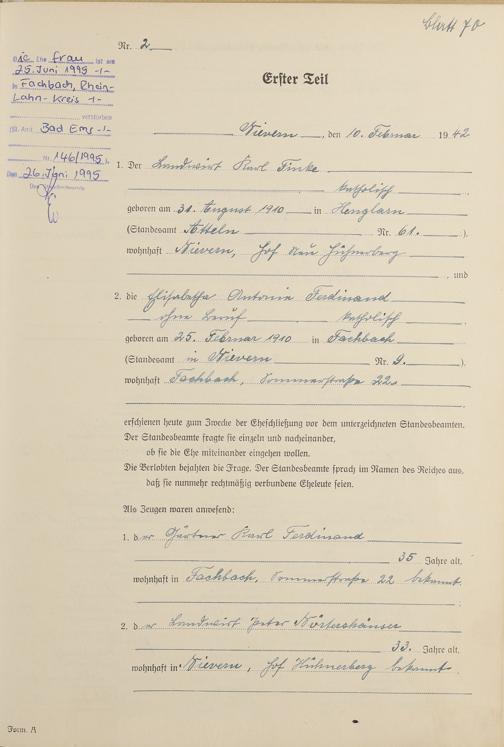 Blatt 70
Nr. 2
Die Ehefrau ist am
25. Juni 1995 -/-
in Fachbach, Rhein-
Lahn-Kreis -/-
verstorben
(St. Amt Bad Ems -/-
Nr. 146/1995).
Den 26. Juni 1995
Erster Teil
Nievern, den 10. Februar 1942
1. Der Landwirt Karl Finke
katholisch
geboren am 31. August 1910 in Henglarn
(Standesamt Atteln Nr. 61.).
wohnhaft Nievern, Hof Neu Hühnerberg
, und
2. die Elisabetha Antonie Ferdinand
ohne Beruf katholisch
geboren am 25. Februar 1910 in Fachbach
(Standesamt in Nievern Nr. 9.).
wohnhaft Fachbach, Sommerstraße 22.
erschienen heute zum Zwecke der Eheschließung vor dem unterzeichneten Standesbeamten.
Der Standesbeamte fragte sie einzeln und nacheinander,
ob sie die Ehe miteinander eingehen wollen.
Die Verlobten bejahten die Frage. Der Standesbeamte sprach im Namen des Reiches aus,
daß sie nunmehr rechtmäßig verbundene Eheleute seien.
Als Zeugen waren anwesend:
1. der Gärtner Karl Ferdinand
35 Jahre alt,
wohnhaft in Fachbach, Sommerstraße 22 bekannt.
2. der Landwirt Peter Nörtershäuser
33. Jahre alt,
wohnhaft in Nievern, Hof Hühnerberg bekannt.
Form. A